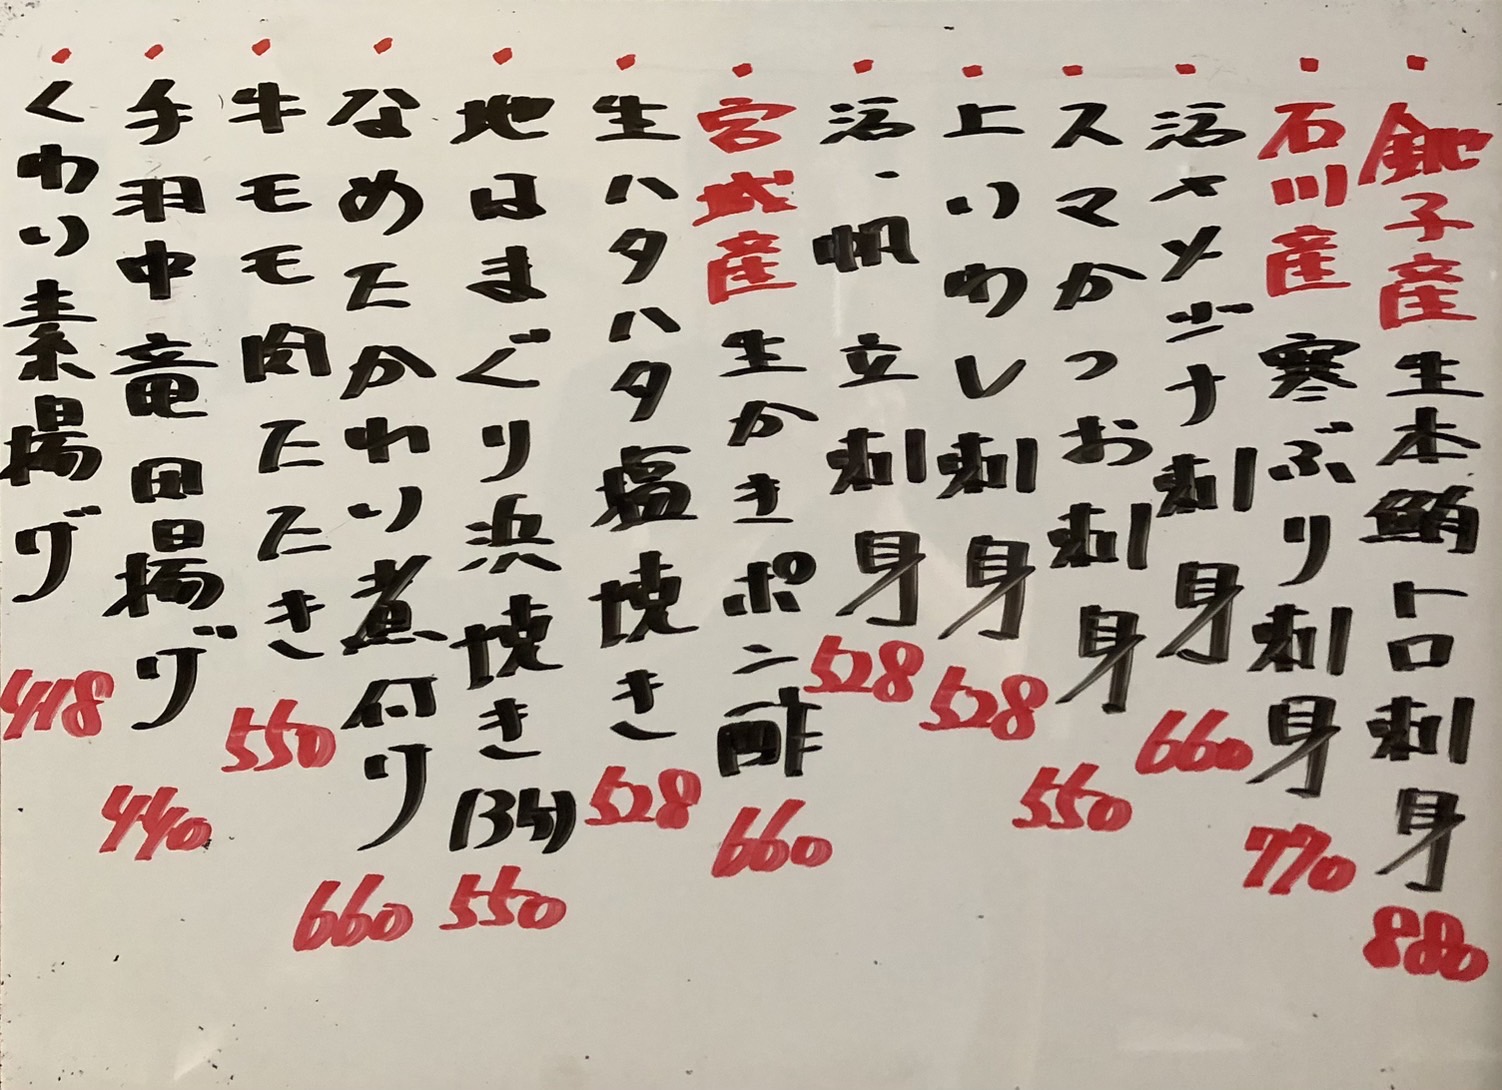 ・銚子産生本鮪トロ刺身 880
・石川産寒ぶり刺身 770
・活〆メジナ刺身 660
・スマかつお刺身 550
・上いわし刺身 528
・活・帆立刺身 528
・宮城産生かきポン酢 660
・生ハタハタ塩焼き 528
・地はまぐり浜焼き(3ケ) 550
・なめたかれい煮付け 660
・牛モモ肉たたき 550
・手羽中竜田揚げ 440
・くわい素揚げ 418